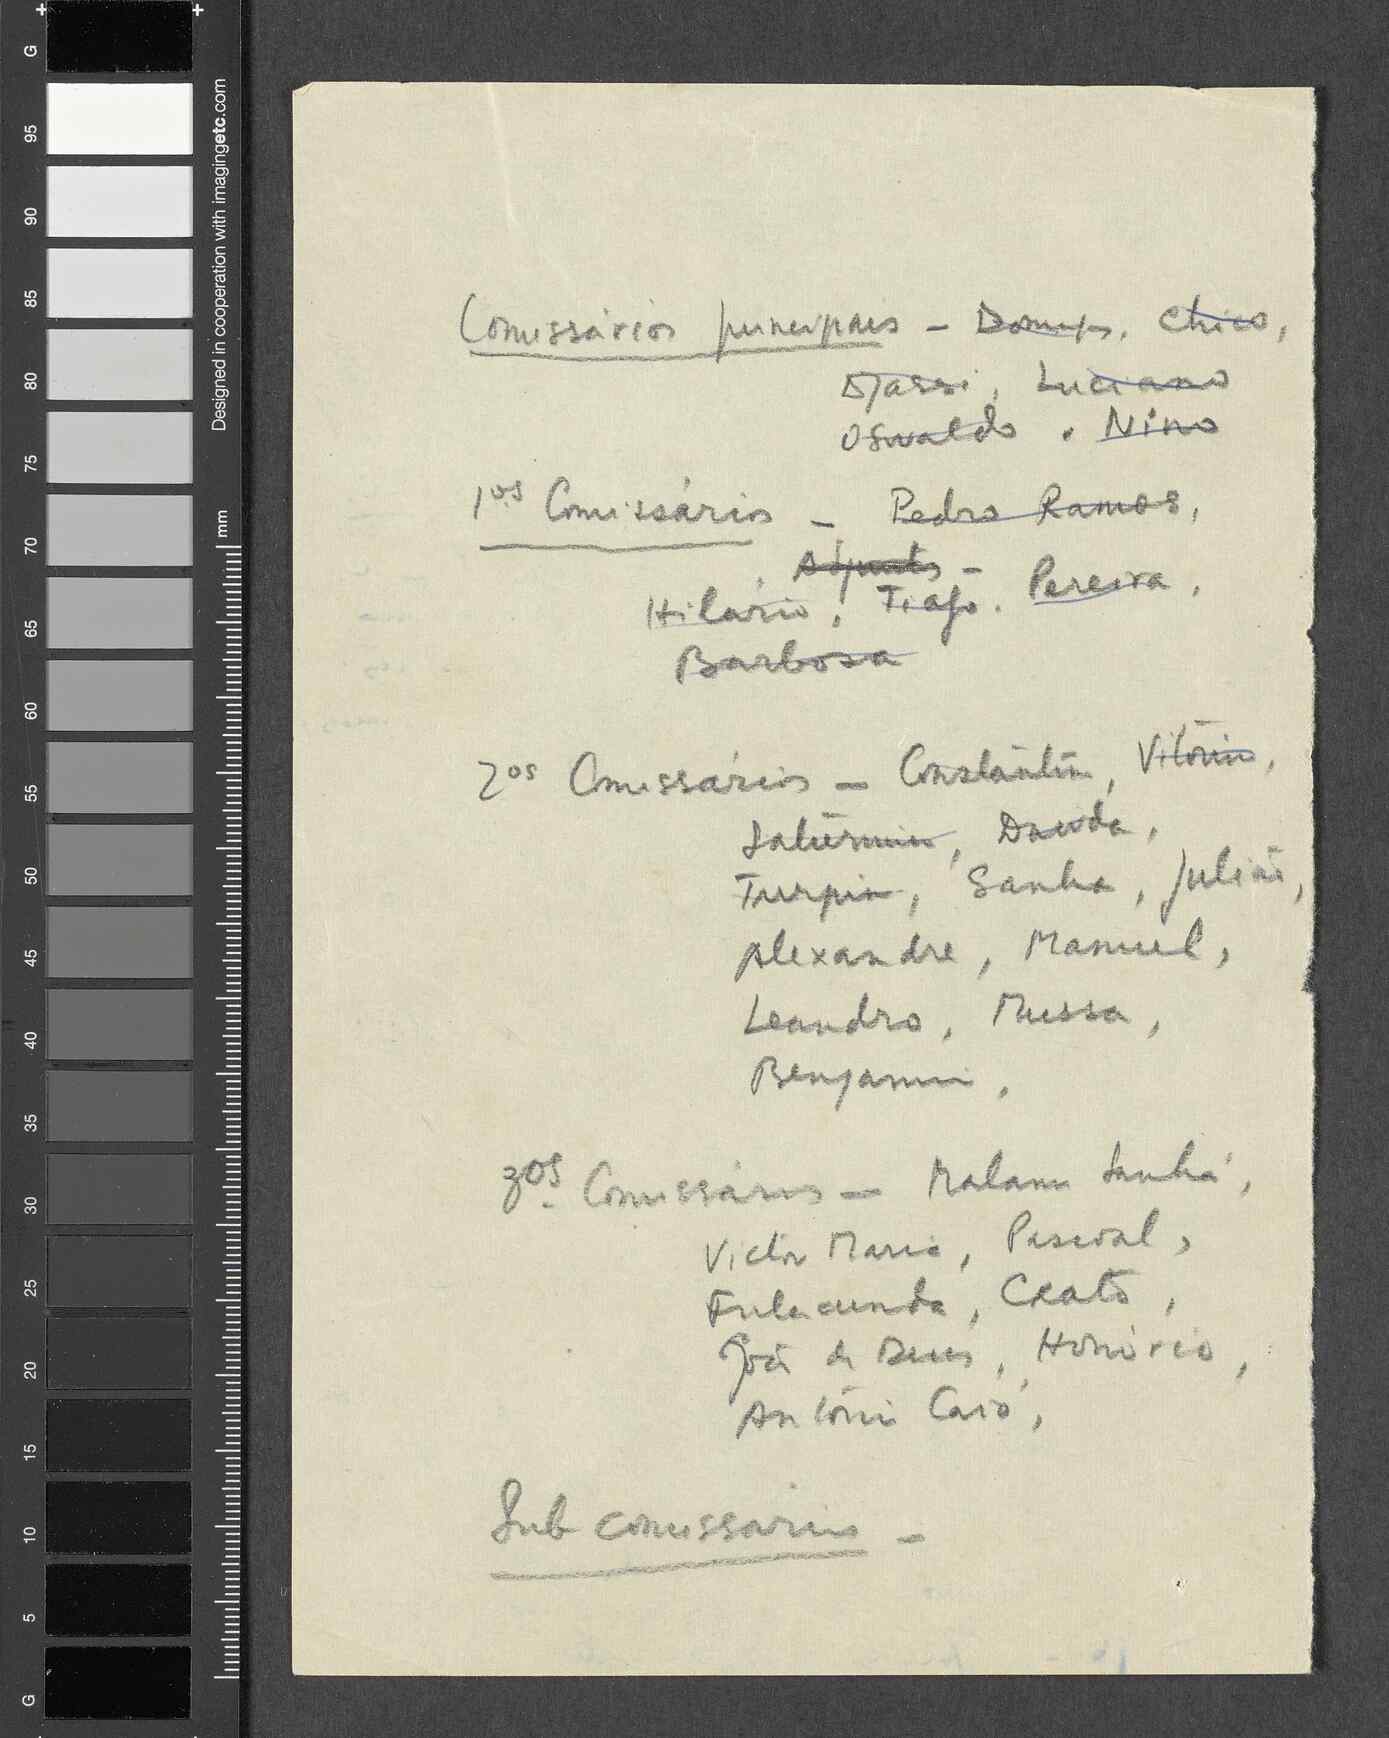 G
95
90
85
80
75
70
65
60
55
50
45
40
35
30
25
20
15
10
5
G
Designed in cooperation with imagingetc.com
mm
Comissários principais – Domingos, Chico,
Djassi, Luciano
Osvaldo . Nino
1os Comissários – Pedro Ramos,
Adjunto –
Hilário, Tiago. Pereira,
Barbosa
2os Comissários – Constantin, Vitórino,
Saturnino, Dauda,
Turpin, Sanha, Julião,
Alexandre, Manuel,
Leandro, Mussa,
Benjamin,
3os Comissários – Malam Sanhá,
Victor Maria, Pascoal,
Fulacunda, Crato,
João de Deus, Honório,
António Caió,
Sub comissários –